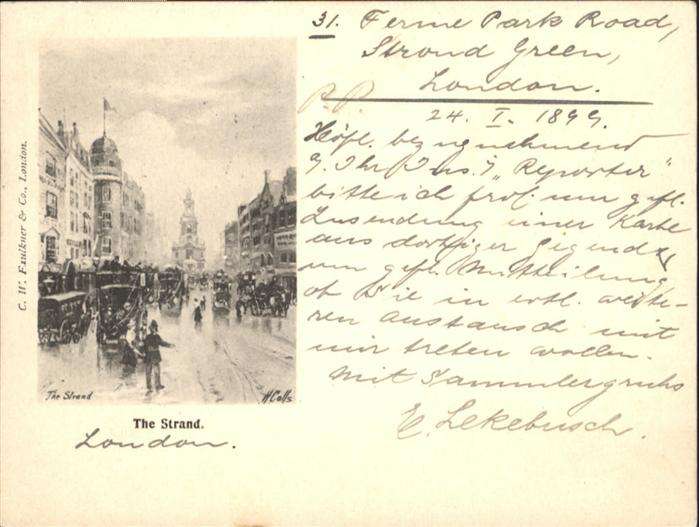 31. Ferme Park Road,
Stroud Green,
London.
P.P.
24. I. 1899.
Höfl. bezugnehmend
a. Ihr Ins. i. „Reporter"
bitte ich frdl. um gefl.
Zusendung einer Karte
aus dortiger Gegend &
um gefl. Mittheilung,
ob Sie in evtl. weite-
ren Austausch mit
mir treten wollen.
Mit Sammlergruss
E. Lekebusch.
C. W. Faulkner & Co., London.
The Strand
The Strand.
London.